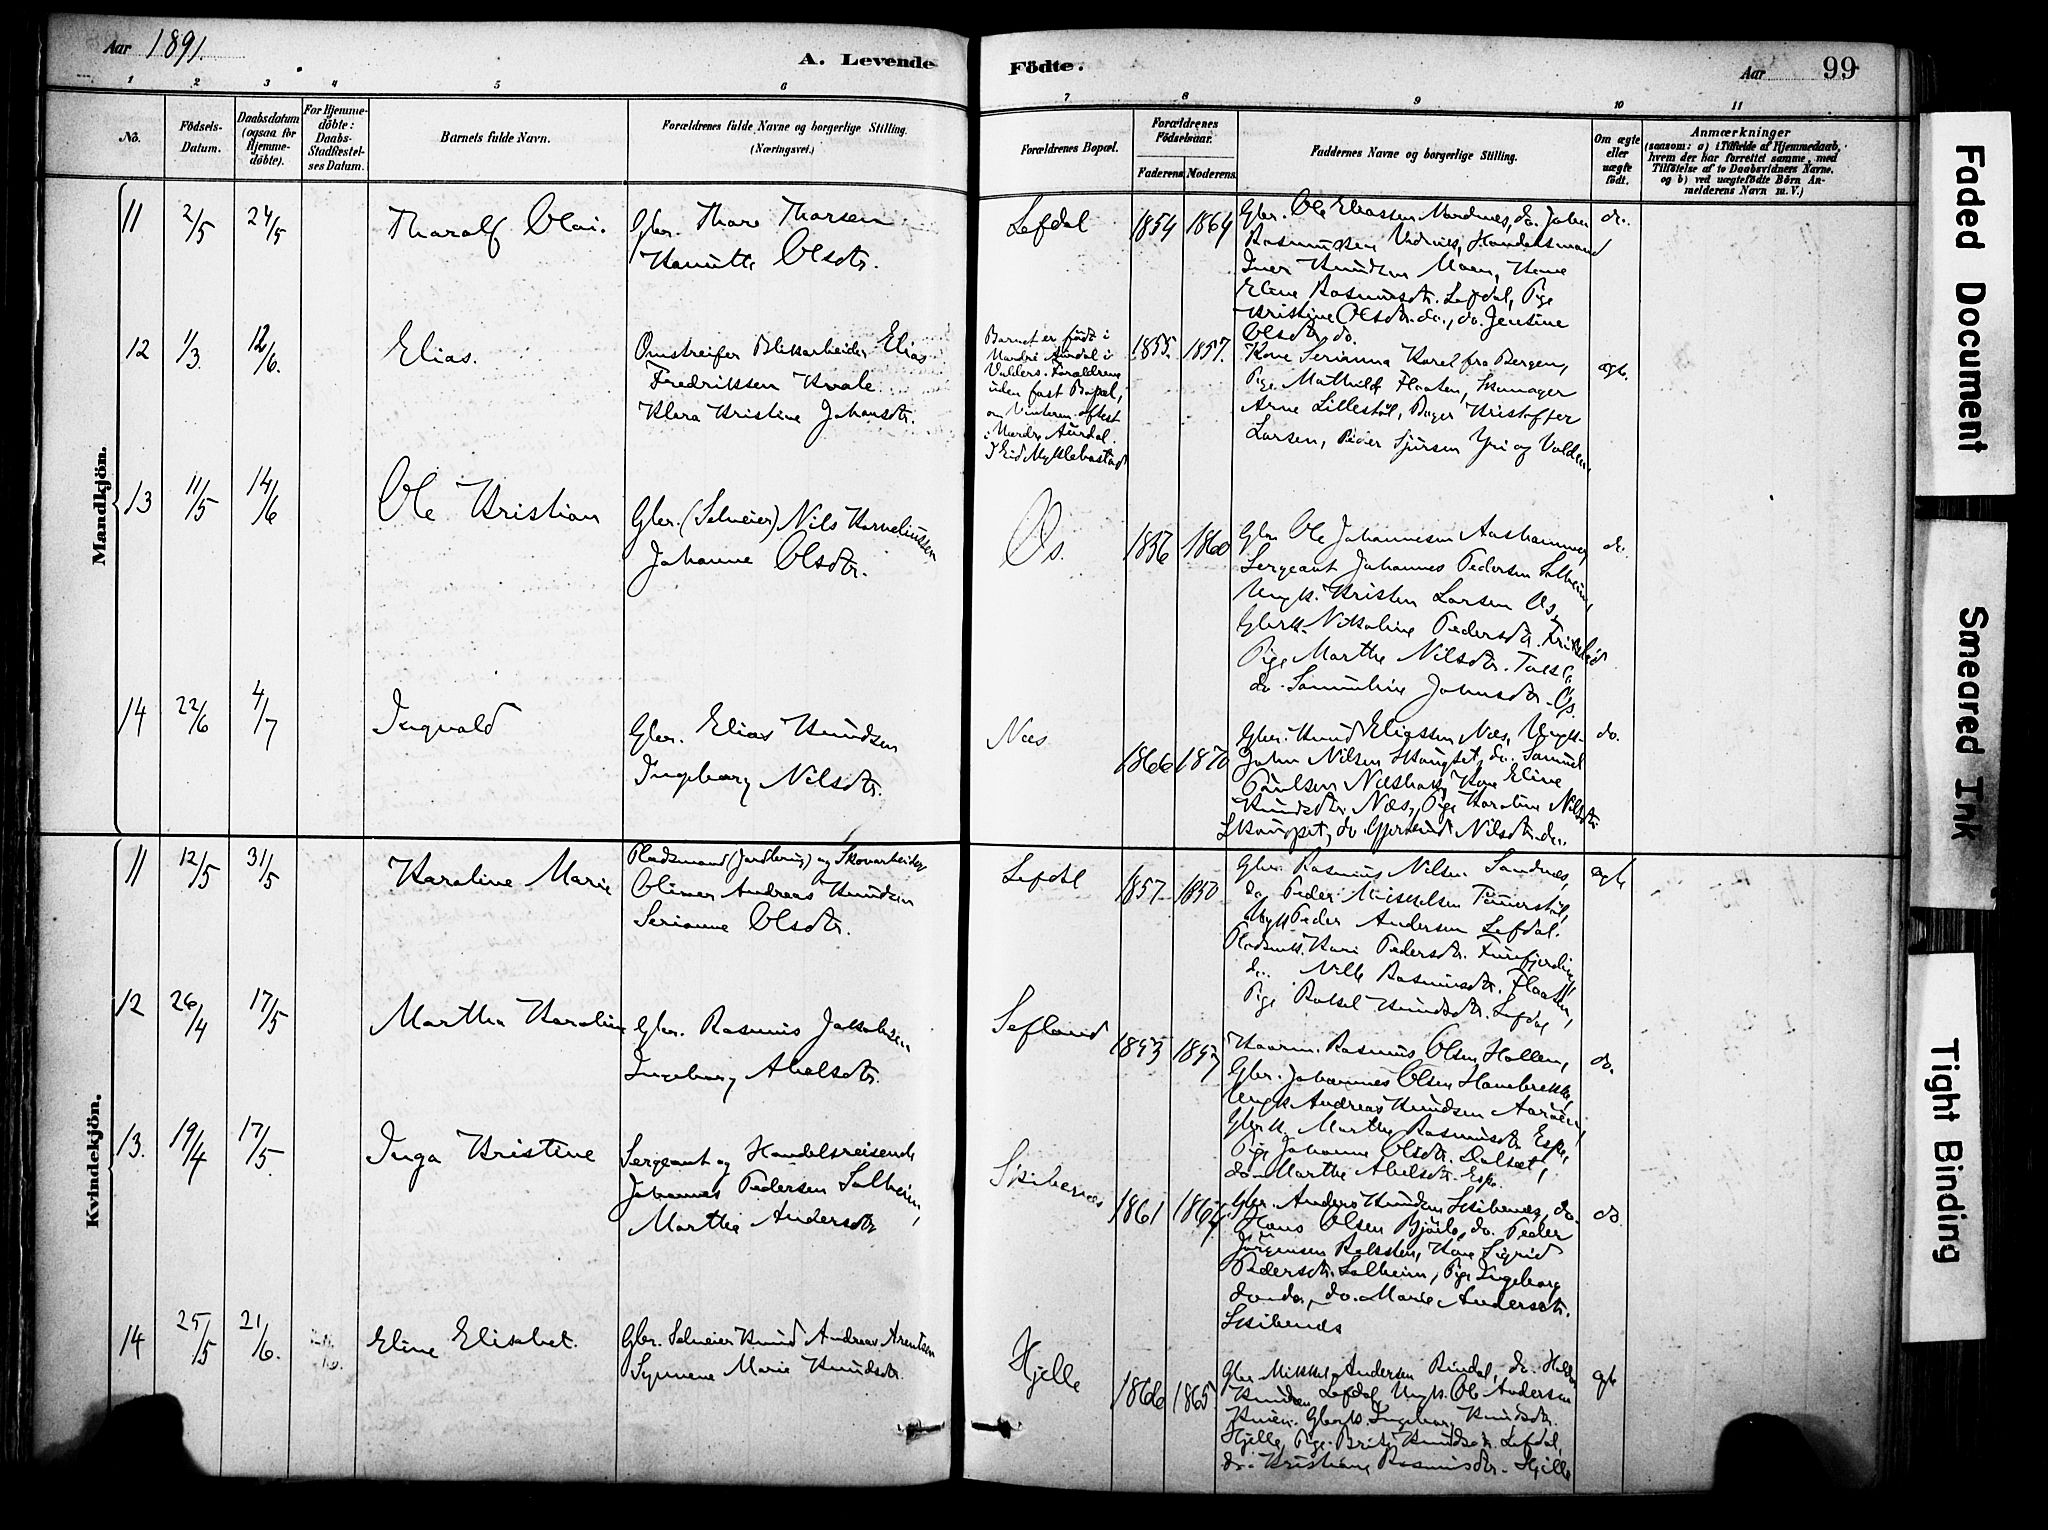 Aar 1891. A. Levende Födte. Aar 99
1 2 3 4 5 6 7 8 9 10 11
No.
Födsels-Datum.
Daabsdatum (ogsaa for Hjemme-döbte).
For Hjemme-döbte: Daabs-Stadfæstel-ses Datum.
Barnets fulde Navn.
Forældrenes fulde Navne og borgerlige Stilling. (Næringsvei.)
Forældrenes Bopæl.
Forældrenes Födselsaar.
Faderens. Moderens.
Faddernes Navne og borgerlige Stilling.
Om ægte eller uægte födt.
Anmærkninger
(saasom: a) i Tilfælde af Hjemmedaab,
hvem der har forrettet samme, med
Tilföielse af to Daabsvidners Navne.
og b) ved uægtefödte Börn An-
melderens Navn m. V.)
Mandkjön.
11 2/5 24/5 Tharalf Olai.
Gbr. Thore Thorsen
Hanutte Olsdtr.
Lefdal 1854 1864
Gbr. Ole Eliassen Nordnes, do. John
Rasmussen Handelsmand
Iver Knudsen Moen, Kone
Eline Rasmusdtr. Lefdal, Pige
Kristine Olsdtr. do., do. Jensine
Olsdtr. do.
do.
12 1/3. 12/6. Elias.
Omstreifer Blikarbeider Elias
Fredriksen Kvale
Klara Kristine Johansdtr.
Barnet er född i
Nordre Aurdal i
Valders. Forældrene
uden fast Bopæl,
om Vinteren oftest
i Nordre Aurdal.
I Eid Myklebostad
1855. 1857.
Kone Serianna Karel fra Bergen,
Pige Mathilde Flaaten, Skomager
Arne Lillestöl, Bager Kristoffer
Larsen, Peder Sjursen Yri og
ægte.
13 11/5 14/6 Ole Kristian
Gbr. (Selveier) Nils Korneliussen
Johanne Olsdtr.
Os. 1856 1860
Gbr. Ole Johannesen Aashammer
Sergeant Johannes Pedersen Solheim,
Ungk. Kristen Larsen Os,
Gbrk. Nikoline Pedersdtr.
Pige Marthe Nilsdtr.
do. Samueline Johnsdtr. Os.
do.
14 22/6 4/7 Ingvald
Gbr. Elias Knudsen
Ingeborg Nilsdtr.
Næs 1866 1870
Gbr. Knud Eliassen Næs, Ungk.
John Nilsen do. Samuel
Paulsen Kone Eline
Knudsdtr. Næs, Pige Karoline Nilsdtr.
do. Gjertrud Nilsdtr. do.
do.
Kvindekjön.
11 12/5 31/5 Karoline Marie
Pladsmand (Jordbrug) og Skovarbeider
Oliver Andreas Knudsen
Serianne Olsdtr.
Lefdal 1857 1850
Gbr. Rasmus Nilsen Sandnes,
do. Peder Mikkelsen
Ungk. Peder Andersen Lefdal.
Pladsmk. Kari Pedersdtr.
do. Nille Rasmusdtr. Flaaten,
Pige Rakel Knudsdtr. Lefdal
ægte
12 26/4 17/5 Martha Karoline
Gbr. Rasmus Jakobsen
Ingeborg Abelsdtr.
Lefland 1853 1857
Kaarm. Rasmus Olsen Hollen,
Gbr. Johannes Olsen
Ungk. Andreas Knudsen
Gbrk. Marthe Rasmusdtr. Espe,
Pige Johanne Olsdtr. Dalset,
do. Marthe Abelsdtr. Espe.
do.
13. 19/4 17/5. Inga Kristine
Sergeant og Handelsreisende
Johannes Pedersen Solheim,
Marthe Andersdtr.
Skibenæs 1861 1864.
Gbr. Anders Knudsen Skibenæs, do.
Hans Olsen do. Peder
Jörgensen Kone Sigrid
Pedersdtr. Solheim, Pige Ingeborg
do. do., do. Marie Andersdtr.
Skibenæs
do.
14 25/5 21/6. Eline Elisabet.
Gbr. Selveier Knud Andreas Arentsen
Synneve Marie Knudsdtr.
Hjelle 1866 1865
Gbr. Mikkel Andersen Rindal, do.
Knudsen Lefdal, Ungk. Ole Andersen
Gbrk. Ingeborg Knudsdtr.
Hjelle, Pige Brite Knudsdtr. Lefdal,
do. Kristiane Rasmusdtr. Hjelle
ægte
Faded Document
Smeared Ink
Tight Binding